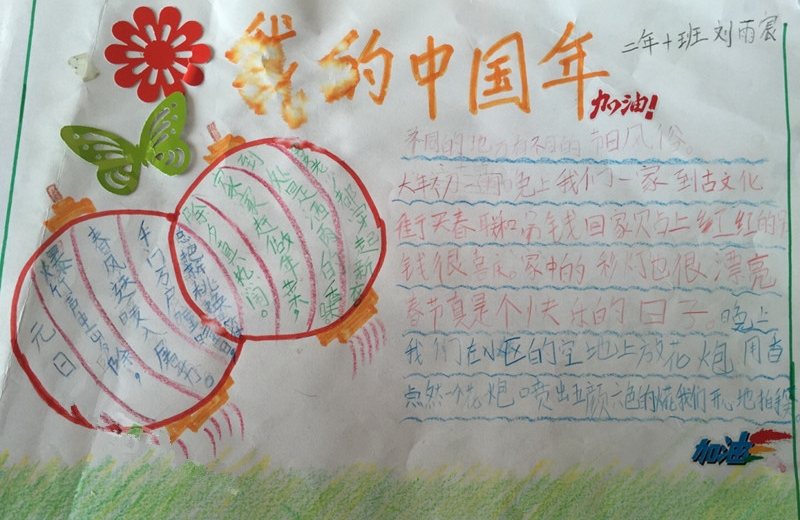 我的中国年
二年十班 刘雨宸
加油!
不同的地方有不同的节日风俗。
大年初二的晚上我们一家到古文化
街买春联和吊钱回家贴上红红的吊
钱很喜庆。家中的彩灯也很漂亮
春节真是个快乐的日子。晚上
我们在小区的空地上放花炮用香
点然一个花炮喷出五颜六色的花我们开心地拍手笑
加油
元日
爆竹声中一岁除,
春风送暖入屠苏。
千门万户曈曈日
总把新桃换旧符
除夕真热闹。
家家赶做年菜,
到处是酒肉的香味